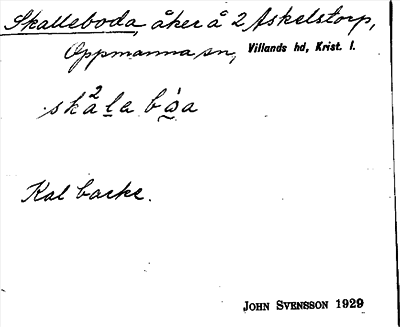 Skalleboda, åker å 2 Askelstorp,
Oppmanna sn, Villands hd, Krist. l.
skå²la bò̰a
Kal backe.
JOHN SVENSSON 1929